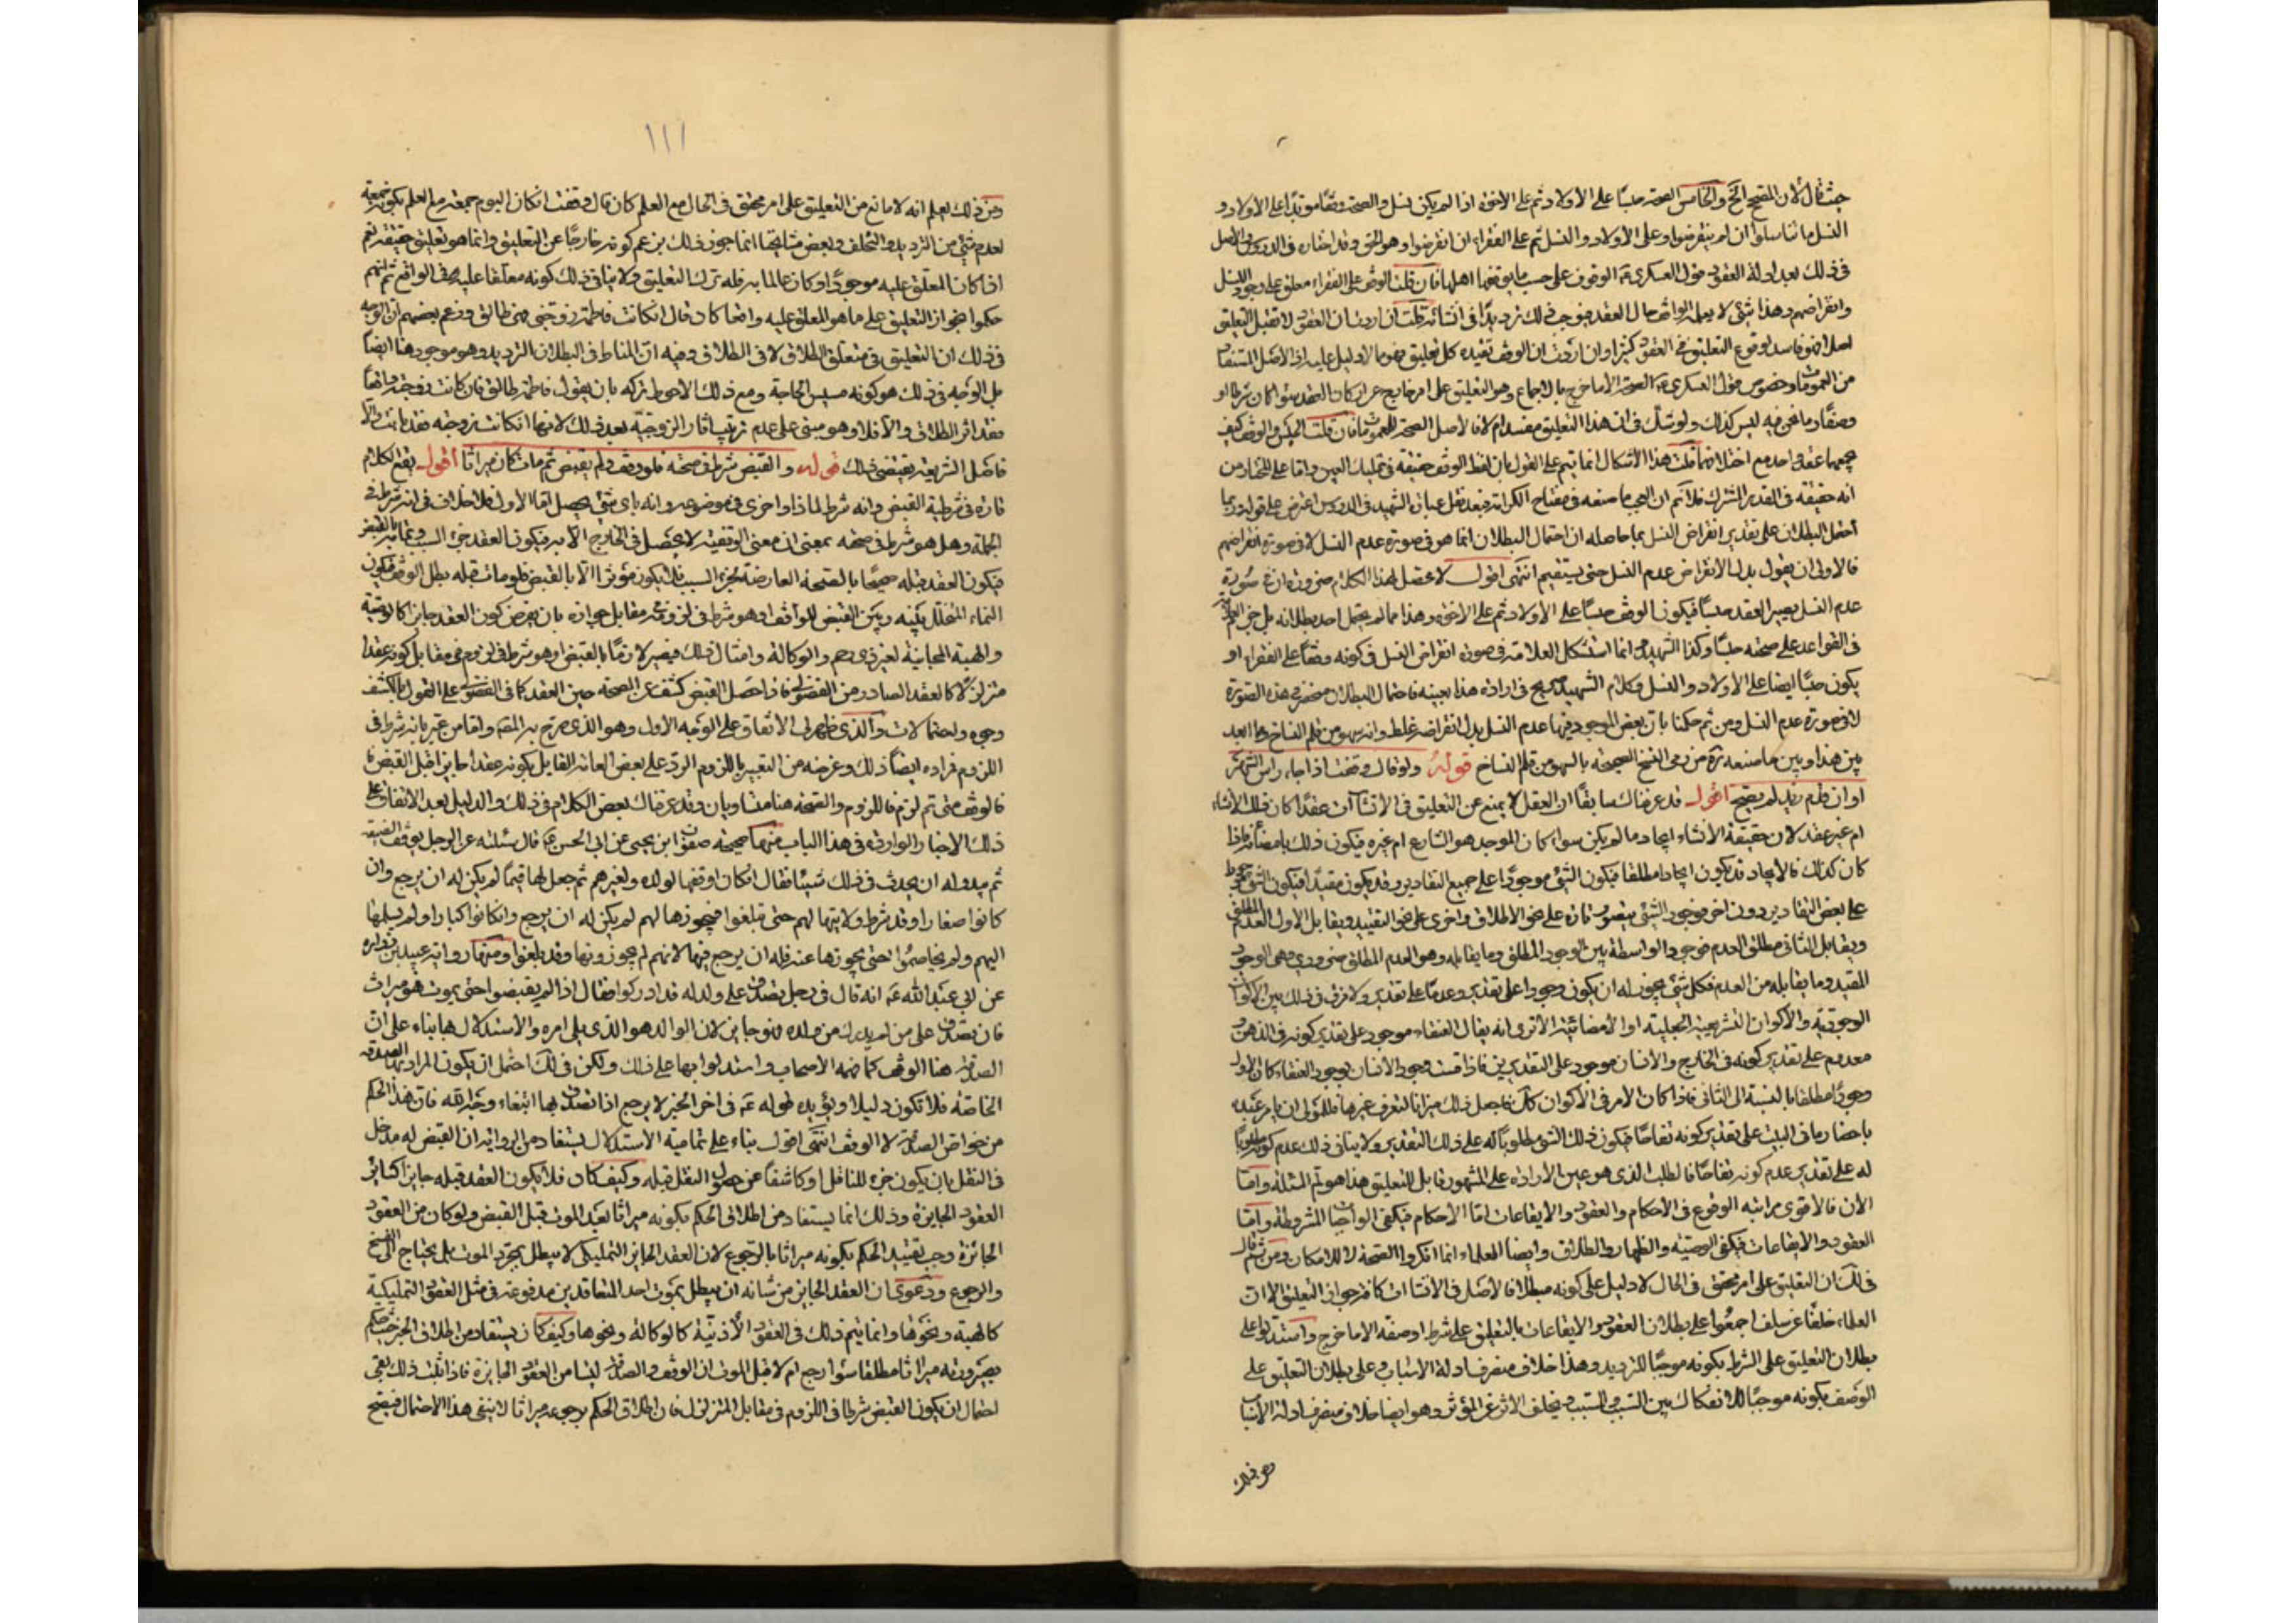 حيث قال لأن المصحح الخ والخامس الصحة حبسا على الأولاد ثم على الاخوة اذا لم يكن نسل والصحة وقفا مؤبدا على الأولاد و
النسل ما تناسلوا ان لم ينقرضوا وعلى الأولاد والنسل ثم على الفقراء ان انقرضوا وهو الحق وقد اختاره في الدروس والأصل
في ذلك بعد ادلة العقود قول العسكري ع الوقوف على حسب ما يوقفها اهلها فان قلت الوقف على الفقراء معلق على وجود النسل
وانقراضهم وهذا شئ لا يعلمه الواقف حال العقد فيوجب ذلك ترديدا في انشائه قلت ان اردت ان العقود لا تقبل التعليق
اصلا فهو فاسد لوقوع التعليق في العقود كثيرا وان اردت ان الوقف يفسده كل تعليق فهو ما لا دليل عليه اذ الأصل المستفاد
من العمومات وخصوص قول العسكري ع الصحة الا ما خرج بالاجماع وهو التعليق على امر خارج عن اركان العقد سواء كان شرطا او
وصفا وما نحن فيه ليس كذلك ولو شك في ان هذا التعليق مفسد ام لا فالأصل الصحة للعمومات فان قلت الحبس والوقف كيف
يجمعهما عقد واحد مع اختلافهما قلت هذا الاشكال انما يتم على القول بان لفظ الوقف حقيقة في تمليك العين واما على المختار من
انه حقيقة في القدر المشترك فلا ثم ان العجب ما صنعه في مفتاح الكرامة فبعد نقل عبارة الشهيد في الدروس اعترض على قوله ربما
احتمل البطلان على تقدير انقراض النسل بما حاصله ان احتمال البطلان انما هو في صورة عدم النسل لا في صورة انقراضهم
فالاولى ان يقول بدل الانقراض عدم النسل حتى يستقيم انتهى اقول لا محصل لهذا الكلام ضرورة ان في صورة
عدم النسل يصير العقد حبسا فيكون الوقف حبسا على الأولاد ثم على الاخوة وهذا مما لم يحتمل احد بطلانه بل جزم العلامة
في القواعد على صحته حبسا وكذا الشهيد وانما استشكل العلامة في صورة انقراض النسل في كونه وقفا على الفقراء او
يكون حبسا ايضا على الأولاد والنسل وكلام الشهيد صريح في ارادة هذا بعينه فاحتمال البطلان منحصر في هذه الصورة
لا في صورة عدم النسل ومن ثم حكمنا بان بعض الموجود فيها عدم النسل بدل انقراضه غلط وانه سهو من قلم الناسخ وما ابعد
بين هذا وبين ما صنعه تره من رمي النسخ الصحيحة بالسهو من قلم النساخ قوله ولو قال وقفت اذا جاء راس الشهر
او ان قدم زيد لم يصح اقول قد عرفناك سابقا ان العقل لا يمنع عن التعليق في الانشاآت عقدا كان ذلك الانشاء
ام غير عقد لان حقيقة الانشاء ايجاد ما لم يكن سواء كان الموجد هو الشارع ام غيره فيكون ذلك بامضائه فاذا
كان كذلك فالايجاد قد يكون ايجادا مطلقا فيكون الشئ موجودا على جميع التقادير وقد يكون مقيدا فيكون الشئ موجودا
على بعض التقادير دون اخر فوجود الشئ يتصور تارة على نحو الاطلاق واخرى على نحو التقييد ويقابل الاول العدم المطلق
ويقابل الثاني مطلق العدم فوجود الواسطة بين الوجود المطلق وما يقابله وهو العدم المطلق ضروري وهي الوجود
المقيد وما يقابله من العدم فكل شئ يجوز له ان يكون وجودا على تقدير وعدما على تقدير ولا فرق في ذلك بين الاكوان
الوجودية والاكوان التشريعية الجعلية او الامضائية الا ترى انه يقال العنقاء موجود على تقدير كونه في الذهن و
معدوم على تقدير كونه في الخارج والانسان موجود على التقديرين فاذا قست وجود الانسان بوجود العنقاء كان الاول
وجودا مطلقا بالنسبة الى الثاني فاذا كان الامر في الاكوان كك فاجعل ذلك ميزانا لتعرف غيرها فللمولى ان يامر عبده
باحضار ما في البيت على تقدير كونه تفاحا فيكون ذلك الشئ مطلوبا له على ذلك التقدير ولا ينافي ذلك عدم كونه مطلوبا
له على تقدير عدم كونه تفاحا فالطلب الذي هو عين الارادة على المشهور قابل للتعليق هذا هو لم المسئلة واما
الان فالاقوى مراتبه الوقوع في الاحكام والعقود والايقاعات اما الاحكام فيكفي الواجبات المشروطة واما
العقود والايقاعات فيكفي الوصية والظهار والطلاق وايضا العلماء انما انكروا الصحة لا الامكان ومن ثم قال
في لك ان التعليق على امر محقق في الحال لا دليل على كونه مبطلا فالأصل في الانشاات كافة جواز التعليق الا ان
العلماء خلفا عن سلف اجمعوا على بطلان العقود والايقاعات بالتعليق على شرط او صفة الا ما خرج واستدلوا على
بطلان التعليق على الشرط بكونه موجبا للترديد وهذا خلاف منصرف ادلة الاسباب وعلى بطلان التعليق على
الوصف بكونه موجبا للانفكاك بين السبب والمسبب وتخلف الاثر عن المؤثر وهو ايضا خلاف منصرف ادلة الاسباب
ومن ذلك
١١١
ومن ذلك يعلم انه لا مانع من التعليق على امر محقق في الحال مع العلم كان قال وقفت ان كان اليوم جمعة مع العلم بكونه جمعة
لعدم شئ من الترديد والتخلف وبعض مشايخنا انما جوز ذلك بزعم كونه خارجا عن التعليق وانما هو تعليق حقيقة نعم
اذا كان المعلق عليه موجودا وكان عالما به فله ترك التعليق ولا ينافي ذلك كونه معلقا عليه في الواقع ثم انهم
حكموا بجواز التعليق على ما هو المعلق عليه واقعا كاد قال ان كانت فاطمة زوجتي فهي طالق وزعم بعضهم ان الوجه
في ذلك ان التعليق في متعلق الطلاق لا في الطلاق وفيه ان المناط في البطلان الترديد وهو موجود هنا ايضا
بل الوجه في ذلك هو كونه مسيس الحاجة ومع ذلك الاحوط تركه بان يقول فاطمة طالق فان كانت زوجته واقعا
فقد اثر الطلاق والا فلا وهو مبني على عدم ترتيب اثار الزوجية بعد ذلك لانها ان كانت زوجته فقد بانت والا
فاصل الشريعة يقتضي ذلك قوله والقبض شرط في صحته فلو وقف ولم يقبض ثم مات كان ميراثا اقول يقع الكلام
تارة في شرطية القبض وانه شرط لماذا واخرى في موضوعه وانه باي شئ يحصل اما الاول فلا خلاف في انه شرط في
الجملة وهل هو شرط في صحته بمعنى ان معنى الوقفية لا يحصل في الخارج الا به فيكون العقد جزء السبب وتمامه بالقبض
فيكون العقد قبله صحيحا بالصحة العارضة لجزء السبب فلا يكون مؤثرا الا بالقبض فلو مات قبله بطل الوقف فيكون
النماء المتخلل بينه وبين القبض للواقف او هو شرط في لزومه مقابل جوازه بان يفرض كون العقد جايزا كالوصية
والهبة المجانية لغير ذي رحم والوكالة وامثال ذلك فيصير لازما بالقبض او هو شرط في لزومه في مقابل كونه عقدا
متزلزلا كالعقد الصادر من الفضولي فاذا حصل القبض كشف عن الصحة حين العقد كما في الفضولي على القول بالكشف
وجوه واحتمالات والذي ظهر لي الاتفاق على الوجه الاول وهو الذي صرح به المص واما من عبر بانه شرط في
اللزوم فمراده ايضا ذلك وغرضه من التعبير باللزوم الرد على بعض العامة القايل بكونه عقدا جايزا قبل القبض
فالوقف متى تم لزم فاللزوم والصحة هنا متساويان وقد عرفناك بعض الكلام في ذلك والدليل بعد الاتفاق على
ذلك الاخبار الواردة في هذا الباب منها صحيحة صفوان ابن يحيى عن ابي الحسن ع قال سئلته عن الرجل يوقف الضيعة
ثم يبدو له ان يحدث في ذلك شيئا فقال ان كان اوقفها لولده ولغيرهم ثم جعل لها قيما لم يكن له ان يرجع وان
كانوا صغارا وقد شرط ولايتها لهم حتى تبلغوا فيحوزها لهم لم يكن له ان يرجع وان كانوا كبارا ولم يسلمها
اليهم ولم يخاصموا حتى يحوزوها عنه فله ان يرجع فيها لانهم لم يحوزونها وقد بلغوا ومنها رواية عبيد بن زرارة
عن ابي عبد الله ع انه قال في رجل تصدق على ولد له قد ادركوا فقال اذا لم يقبضوا حتى يموت فهو ميراث
فان تصدق على من لم يدرك من ولده فهو جايز لان الوالد هو الذي يلي امره والاستدلال بها بناء على ان
الصدقة هنا الوقف كما فهمه الاصحاب واستدلوا بها على ذلك ولكن في لك احتمل ان يكون المراد بها الصدقة
الخاصة فلا تكون دليلا ويؤيده قوله ع في اخر الخبر لا يرجع اذا تصدق بها ابتغاء وجه الله فان هذا الحكم
من خواص الصدقة لا الوقف انتهى اقول بناء على تمامية الاستدلال يستفاد من الرواية ان القبض له مدخل
في النقل بان يكون جزء للناقل او كاشفا عن حصول النقل قبله وكيف كان فلا يكون العقد قبله جايزا كسائر
العقود الجايزة وذلك انما يستفاد من اطلاق الحكم بكونه ميراثا بعيد الموت قبل القبض ولو كان من العقود
الجائزة وجب تقييد الحكم بكونه ميراثا بالرجوع لان العقد الجايز التمليكي لا يبطل بمجرد الموت بل يحتاج الى الفسخ
والرجوع ودعوى ان العقد الجايز من شانه ان يبطل بموت احد المتعاقدين مدفوعة في مثل العقود التمليكية
كالهبة ونحوها وانما يتم ذلك في العقود الاذنية كالوكالة ونحوها وكيف كان يستفاد من اطلاق الخبر حيث حكم
بصيرورته ميراثا مطلقا سواء رجع ام لا قبل الموت ان الوقف والصدقة ليسا من العقود الجايزة فاذا ثبت ذلك بقي
احتمال ان يكون القبض شرطا في اللزوم في مقابل المتزلزل فان اطلاق الحكم برجوعه ميراثا لا ينفي هذا الاحتمال فيصح